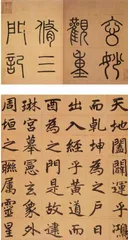 玄妙
觀重
脩三
門記
天地闔闢運乎鴻
而乾坤為之戶日
出入經乎黃道而
酉為之門是故建
琳宮摹憲玄象外
周垣之聯屬靈星